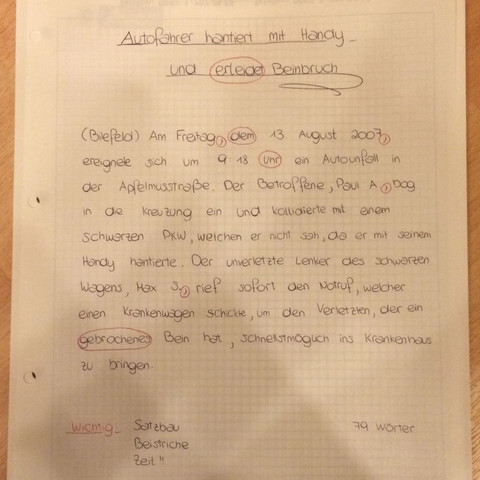 Autofahrer hantiert mit Handy
und erleidet Beinbruch
(Bielefeld) Am Freitag, dem 13. August 2007,
ereignete sich um 9:18 Uhr ein Autounfall in
der Apfelmusstraße. Der Betroffene, Paul A., bog
in die Kreuzung ein und kollidierte mit einem
schwarzen PKW, welchen er nicht sah, da er mit seinem
Handy hantierte. Der unverletzte Lenker des schwarzen
Wagens, Max S., rief sofort den Notruf, welcher
einen Krankenwagen schickte, um den Verletzten, der ein
gebrochenes Bein hat, schnellstmöglich ins Krankenhaus
zu bringen.
Wichtig: Satzbau 79 Wörter
Beistriche
Zeit!!